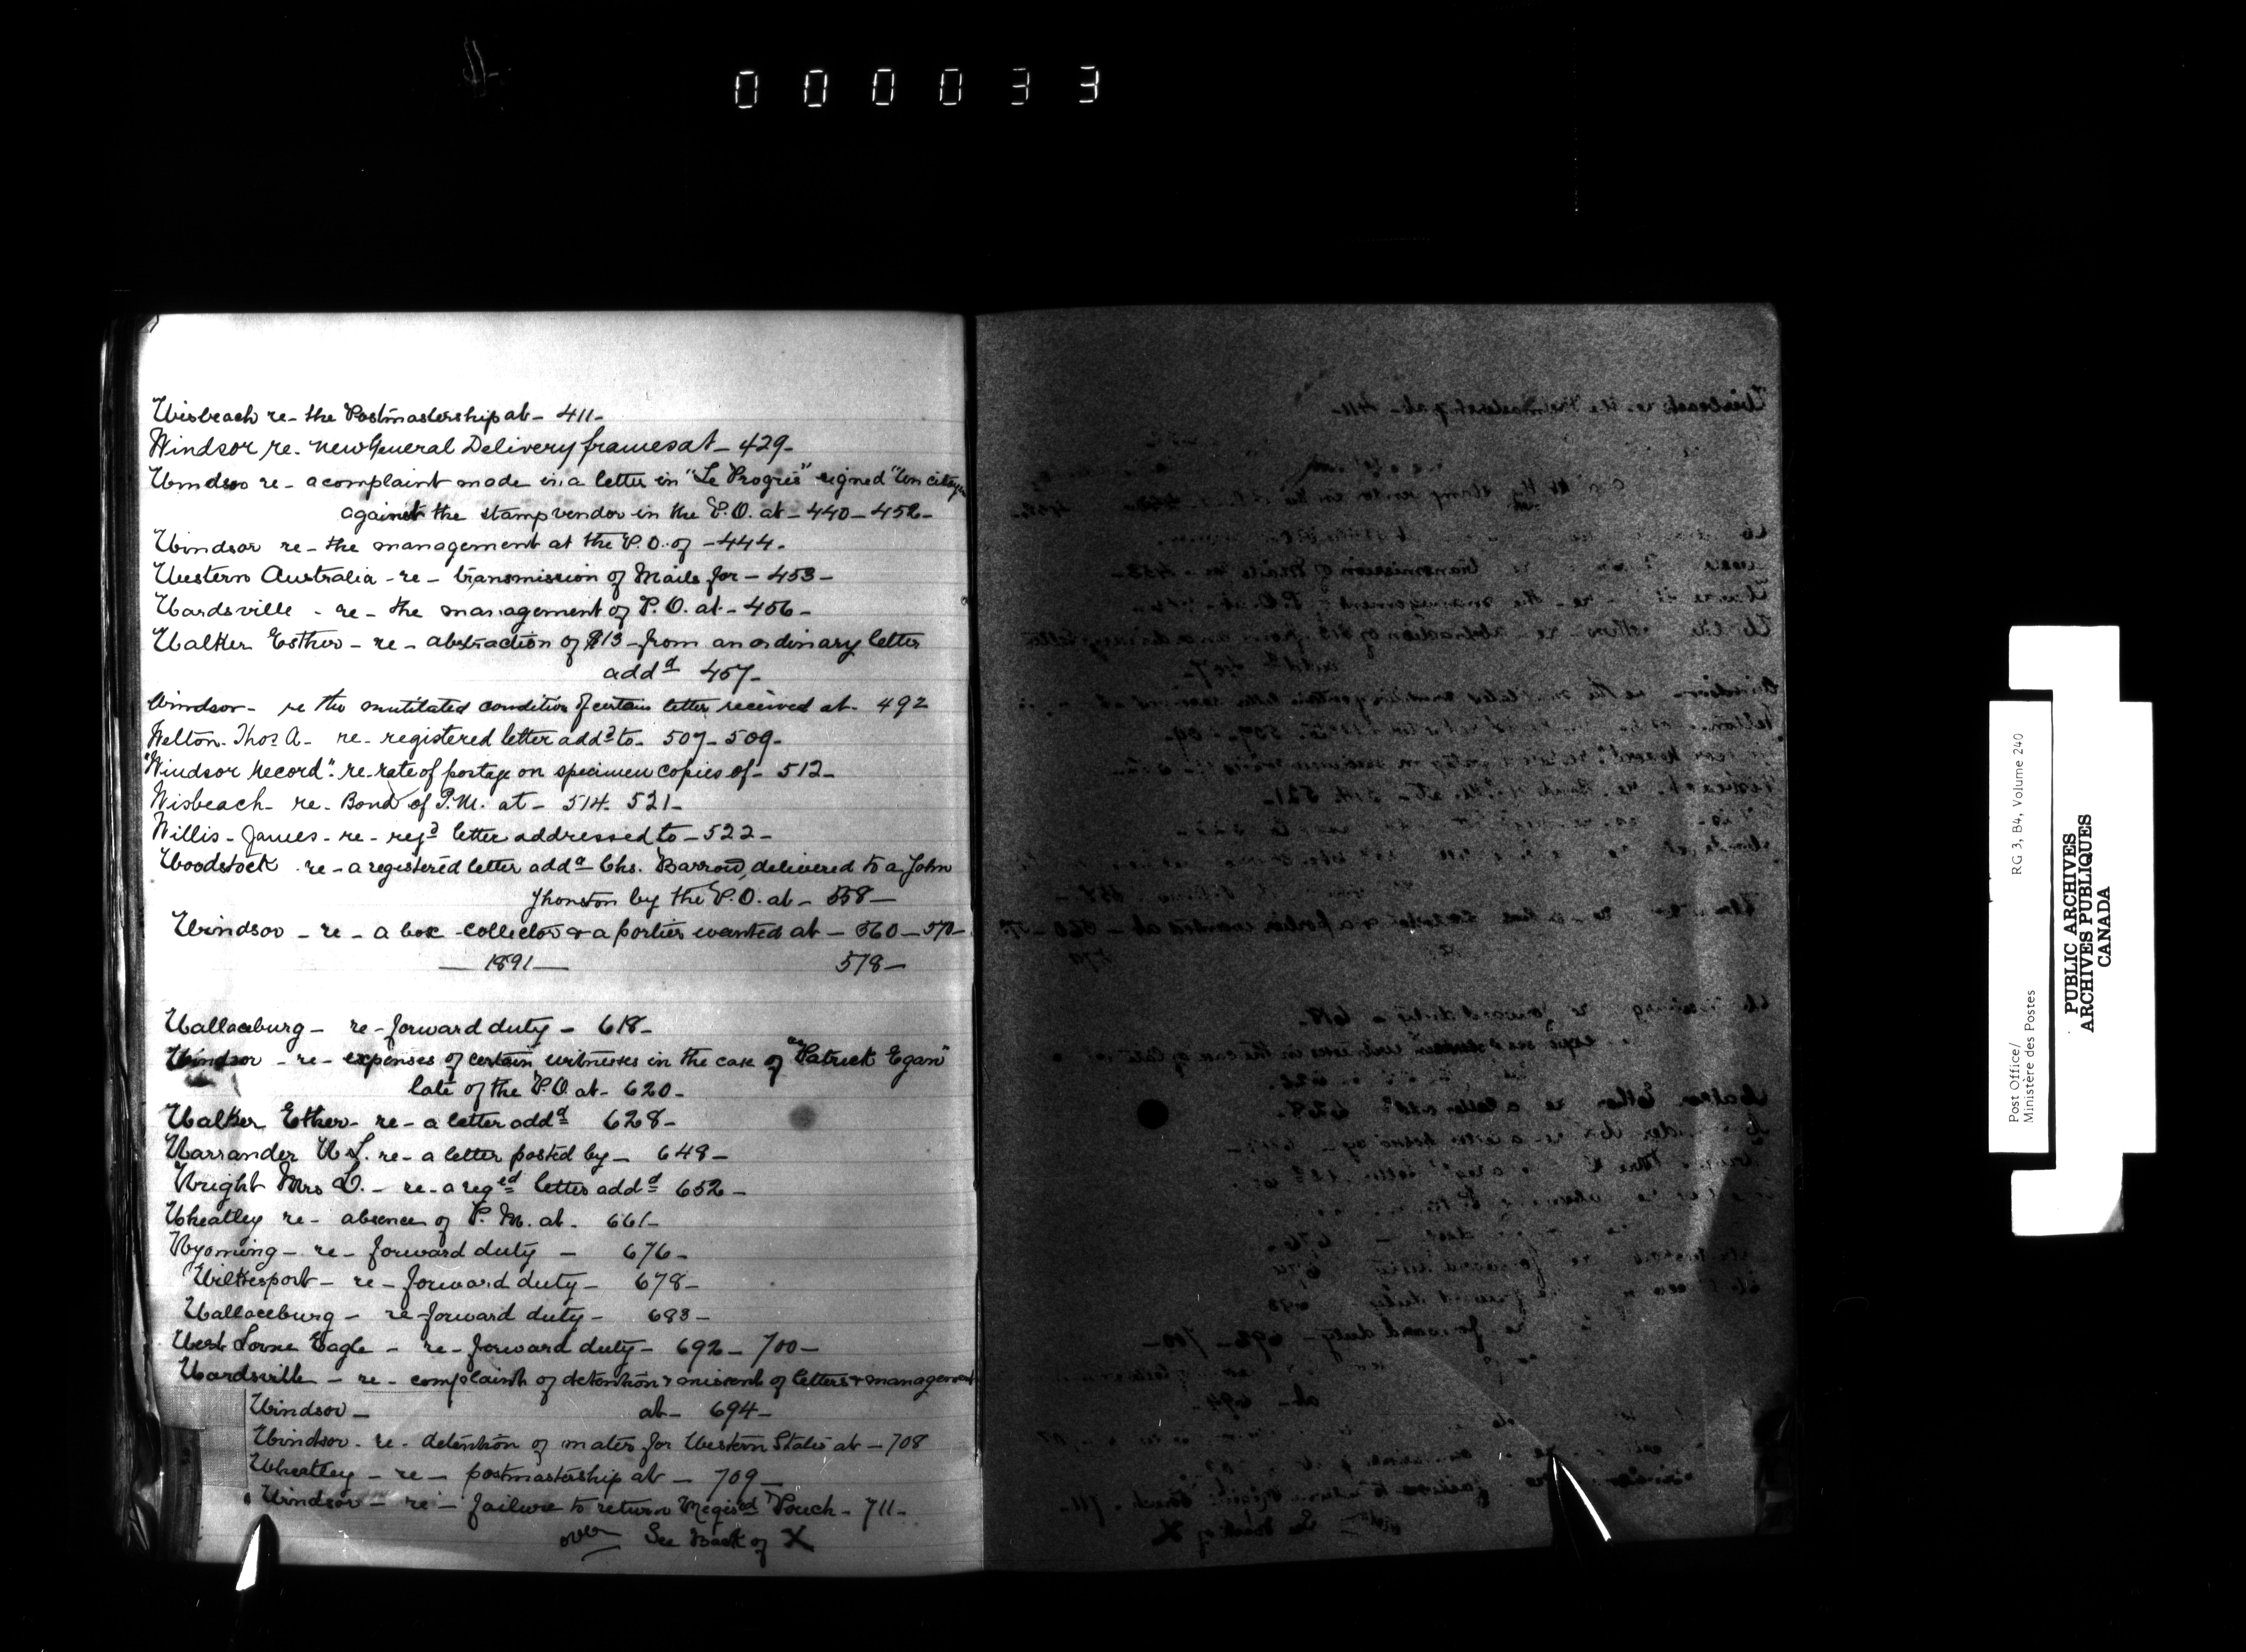 000033
Wisbeach re- the Postmastership at - 411-
Windsor re. new General Delivery frames at - 429-
Windsor re - a complaint made in a letter in "Le Progres" signed "Un citoyen
against the stamp vendor in the P.O. at - 440 - 452 -
Windsor re - the management at the P.O. of - 444 -
Western Australia - re - transmission of Mails for - 453 -
Wardsville - re - the management of P.O. at - 456 -
Walker Esther - re - abstraction of $13 - from an ordinary letter
addd 457-
Windsor - re the mutilated condition of certain letter received at - 492
Welton. Thos A - re - registered letter addd to - 507 - 509 -
"Windsor Record". re. rate of postage on specimen copies of - 512 -
Wisbeach - re - Bond of P.M. at - 514. 521 -
Willis - James - re - regd letter addressed to - 522 -
Woodstock - re - a registered letter addd Chs. Barrow, delivered to a John
Jhonston by the P.O. at - 558 -
Windsor - re - a box collector & a porter wanted at - 560 - 570 -
1891 578 -
Wallaceburg - re - forward duty - 618 -
Windsor - re - expenses of certain witnesses in the case of "Patrick Egan"
late of the P.O. at - 620 -
Walker Esther - re - a letter addd 628 -
Warrander W L. re - a letter posted by - 648 -
Wright Mrs D. - re - a reged letter addd 652 -
Wheatley re - absence of P. M. at - 661 -
Wyoming - re - forward duty - 676 -
Wilkesport - re - forward duty - 678 -
Wallaceburg - re forward duty - 683 -
West Lorne Eagle - re - forward duty - 692 - 700 -
Wardsville - re - complaints of detention & missent of letters & management
Windsor - at - 694 -
Windsor - re - detention of mater for Western States at - 708
Wheatley - re - postmastership at - 709 -
Windsor - re - failure to return Regised Pouch - 711 -
over See Back of X
Post Office/
Ministère des Postes
RG 3, B4, Volume 240
PUBLIC ARCHIVES
ARCHIVES PUBLIQUES
CANADA